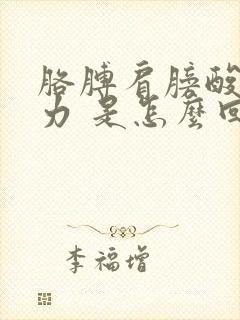 胳膊肩膀酸
力 是怎麽回
李福增